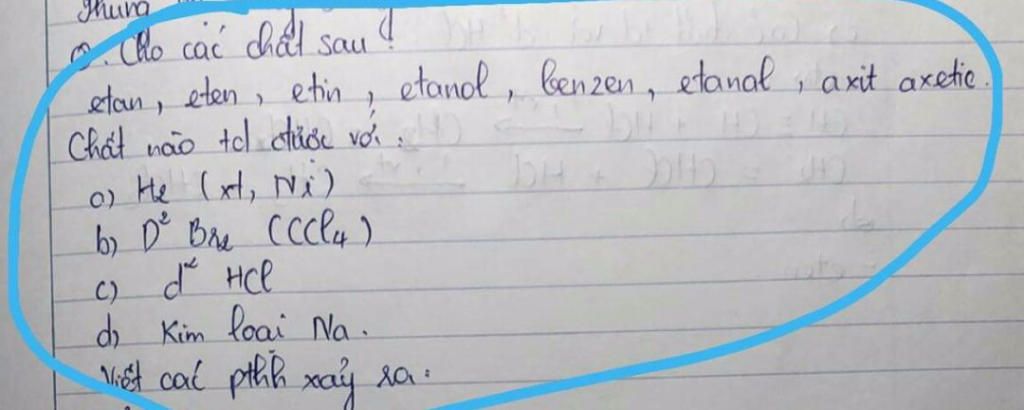 chung
2. Cho các chất sau!
etan, eten, etin, etanol, benzen, etanal, axit axetic.
Chất nào td được với:
a) H2 (xt, Ni)
b) D² Br2 (CCl4)
c) d² HCl
d) Kim loại Na.
Viết các pthh xảy ra: